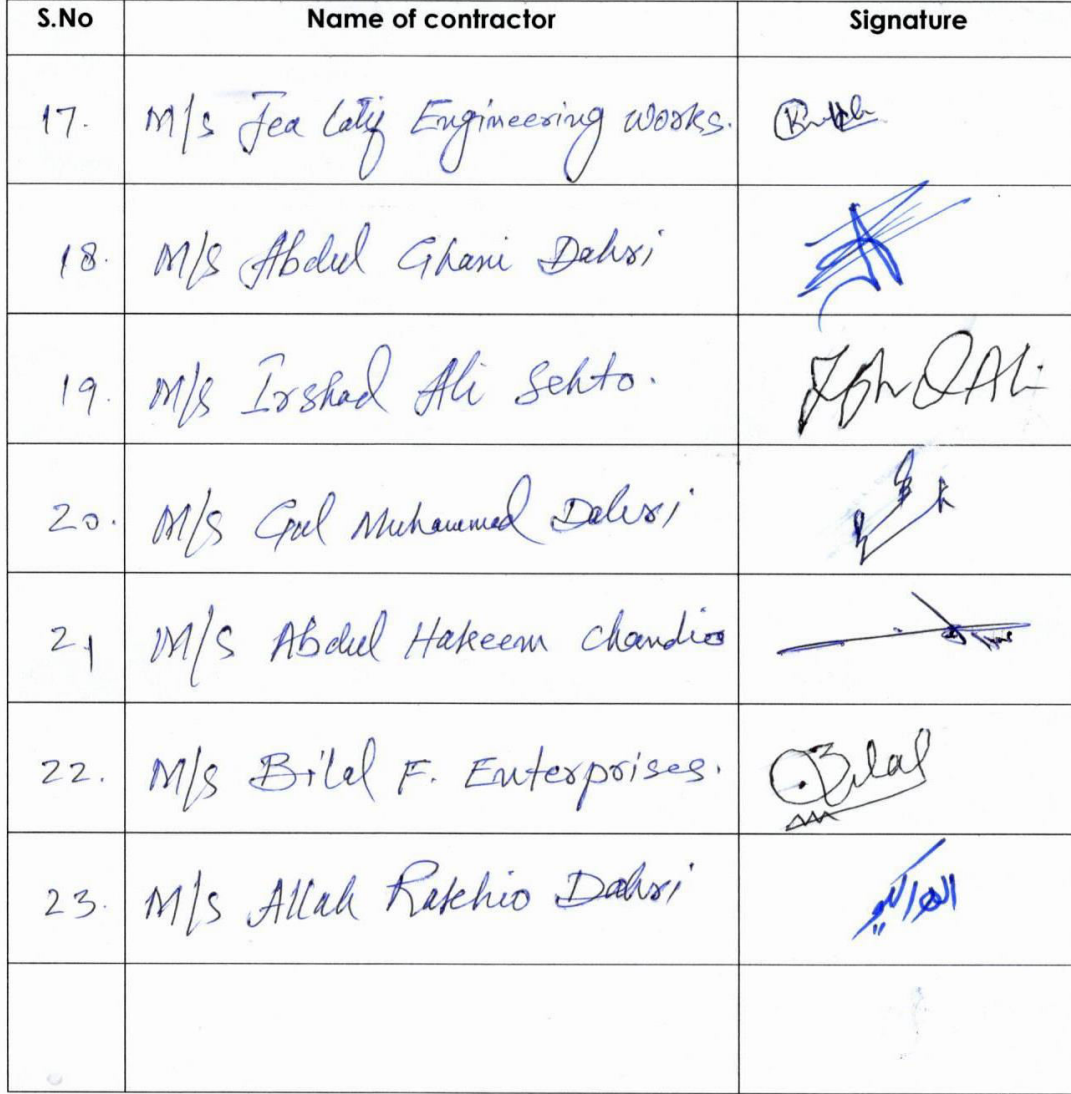 S.No Name of contractor Signature
17. M/s Fea Latif Engineering Works.
18. M/s Abdul Ghani Dahri
19. M/s Irshad Ali Sehto. Ali
20. M/s Gul Muhammad Dahri
21 M/s Abdul Hakeem Chandio
22. M/s Bilal F. Enterprises. Bilal
23. M/s Allah Rakhio Dahri